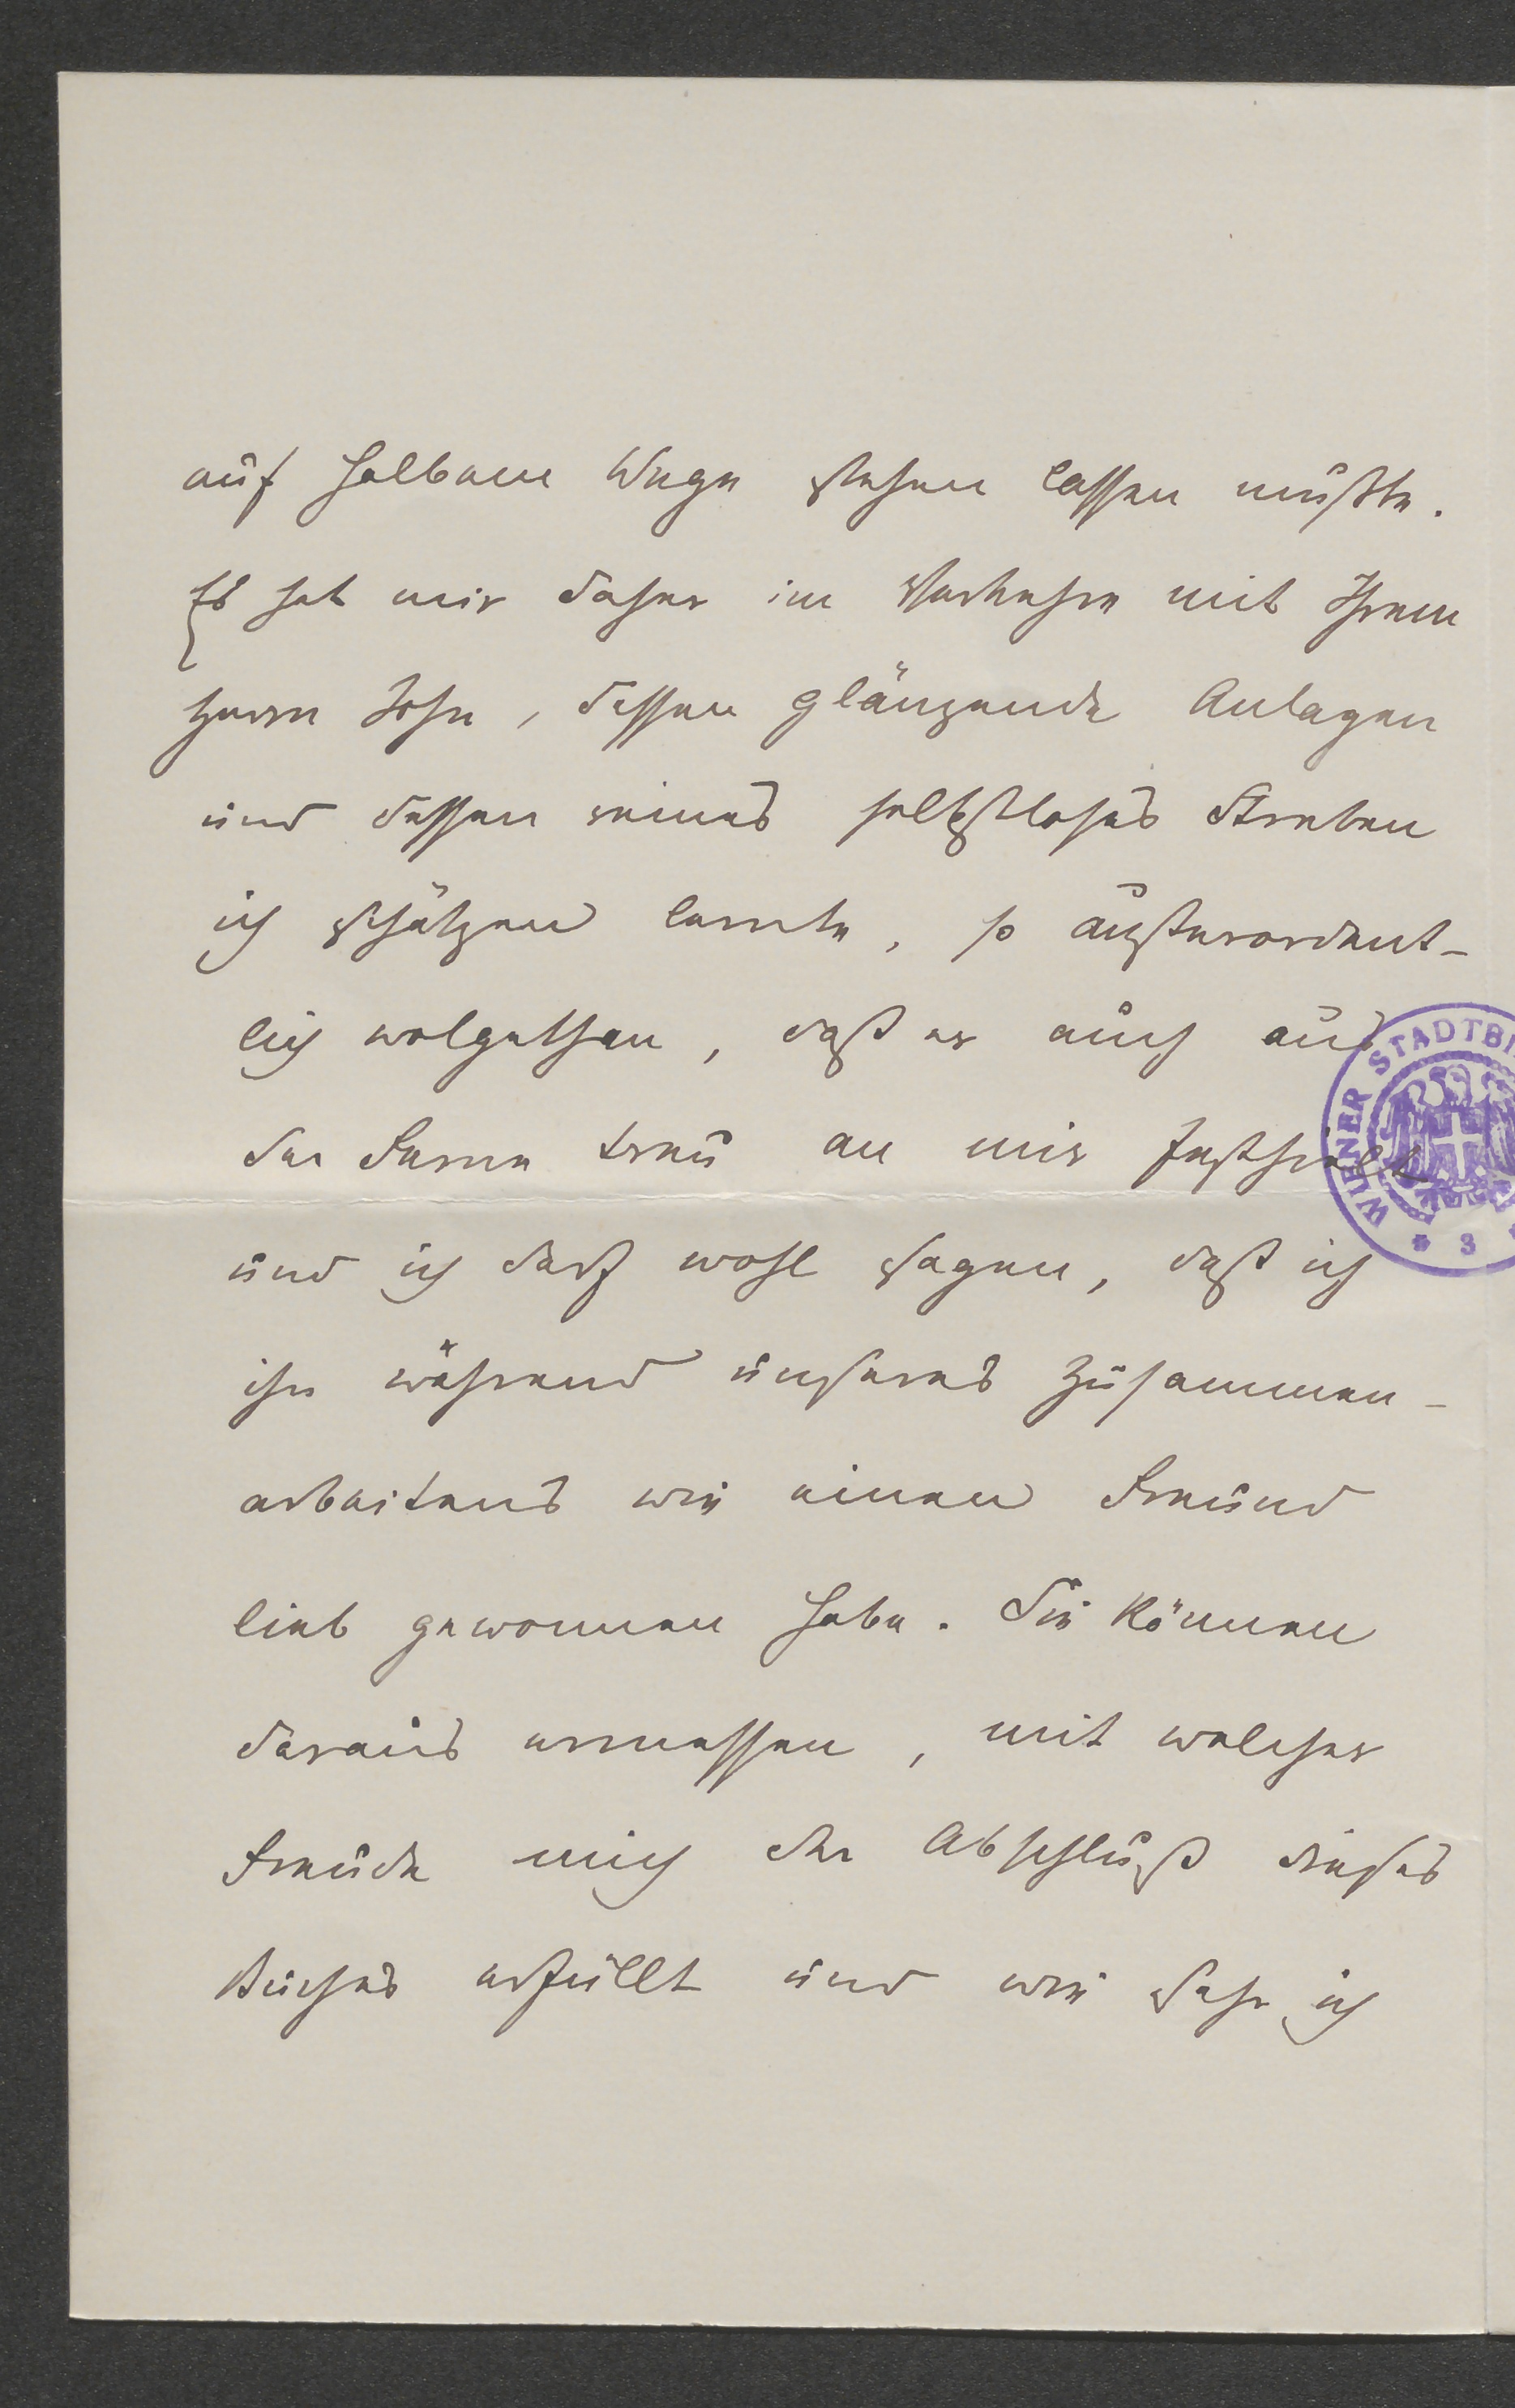 auf halbem Wege stehen lassen mußte.
Es hat mir daher im Verkehre mit Ihrem
Herrn Sohn, dessen glänzende Anlagen
und dessen reines selbstloses Streben
ich schätzen lernte, so außerordent-
lich wolgethan, daß er auch aus
der Ferne treu an mir festhielt
und ich darf wohl sagen, daß ich
ihn während unseres Zusammen-
arbeitens wie einen Freund
lieb gewonnen habe. Sie können
daraus ermessen, mit welcher
Freude mich der Abschluß dieses
Buches erfüllt und wie sehr ich
WIENER STADTBI
3